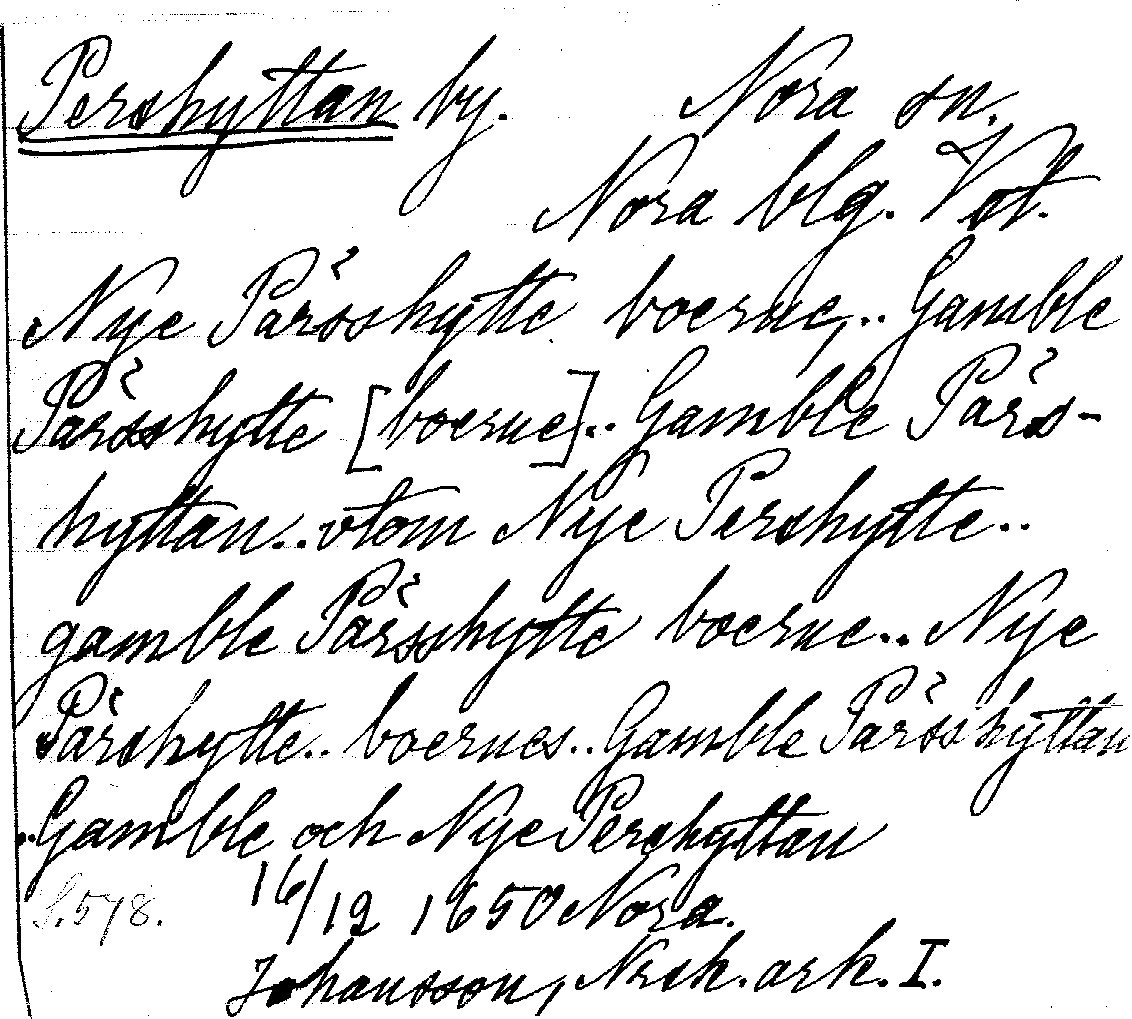 Pershyttan by. Nora sn.
Nora blg. Vstm.
Nye Pårsshytte boerne,.. Gamble
Pårsshytte [boerne].. Gamble Pårs-
hyttan.. vtom Nye Pershytte..
gamble Pårsshytte boerne.. Nye
Pårshytte.. boernes.. Gamble Pårsshyttan
.. Gamble och Nye Pershyttan
S. 578. 16/12 1650 Nora.
Johansson, Nrsk. ark. I.